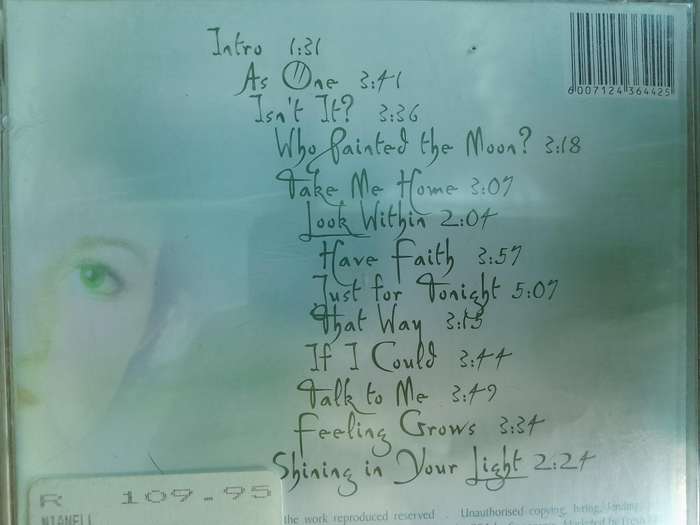 Intro 1:31
As One 3:41
Isn't It? 3:36
Who Painted the Moon? 3:18
Take Me Home 3:07
Look Within 2:04
Have Faith 3:57
Just for Tonight 5:07
That Way 3:15
If I Could 3:44
Talk to Me 3:49
Feeling Grows 3:34
Shining in Your Light 2:24
6007124364425
R 109.95
NIANELL
the work reproduced reserved . Unauthorised copying, hiring, lending,